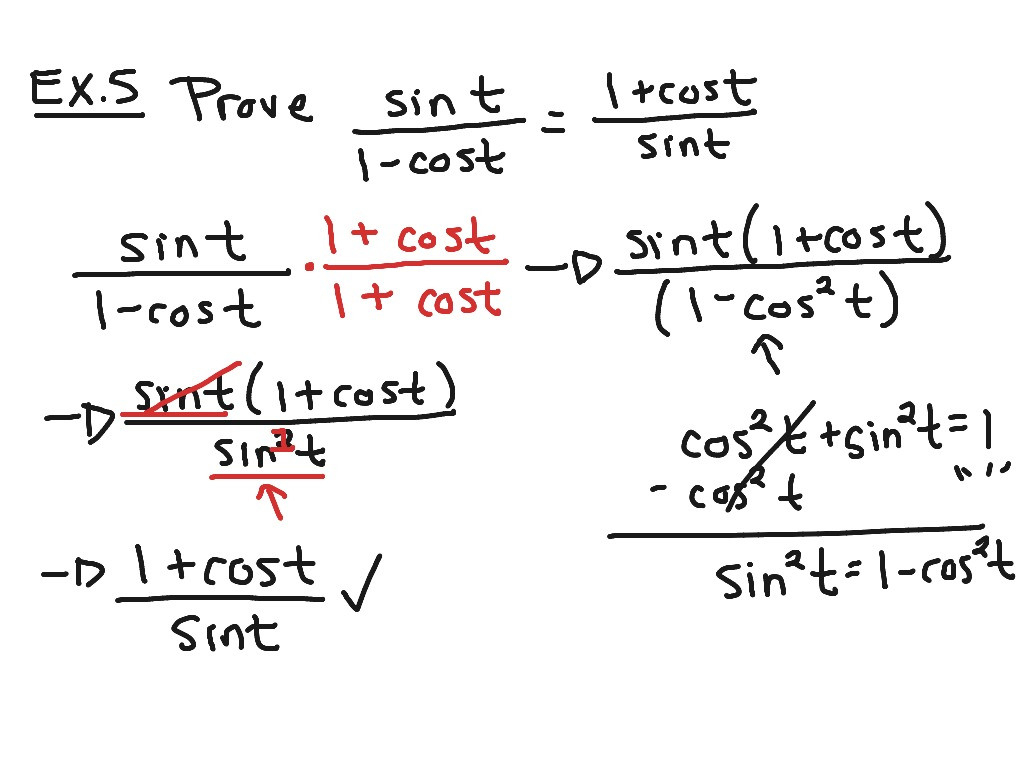 EX.5 Prove sin t / 1 - cos t = 1 + cos t / sin t
sin t / 1 - cos t · 1 + cos t / 1 + cos t → sin t (1 + cos t) / (1 - cos² t)
↑
→ sin t (1 + cos t) / sin² t
1
↑
cos² t + sin² t = 1
- cos² t
sin² t = 1 - cos² t
→ 1 + cos t / sin t ✓